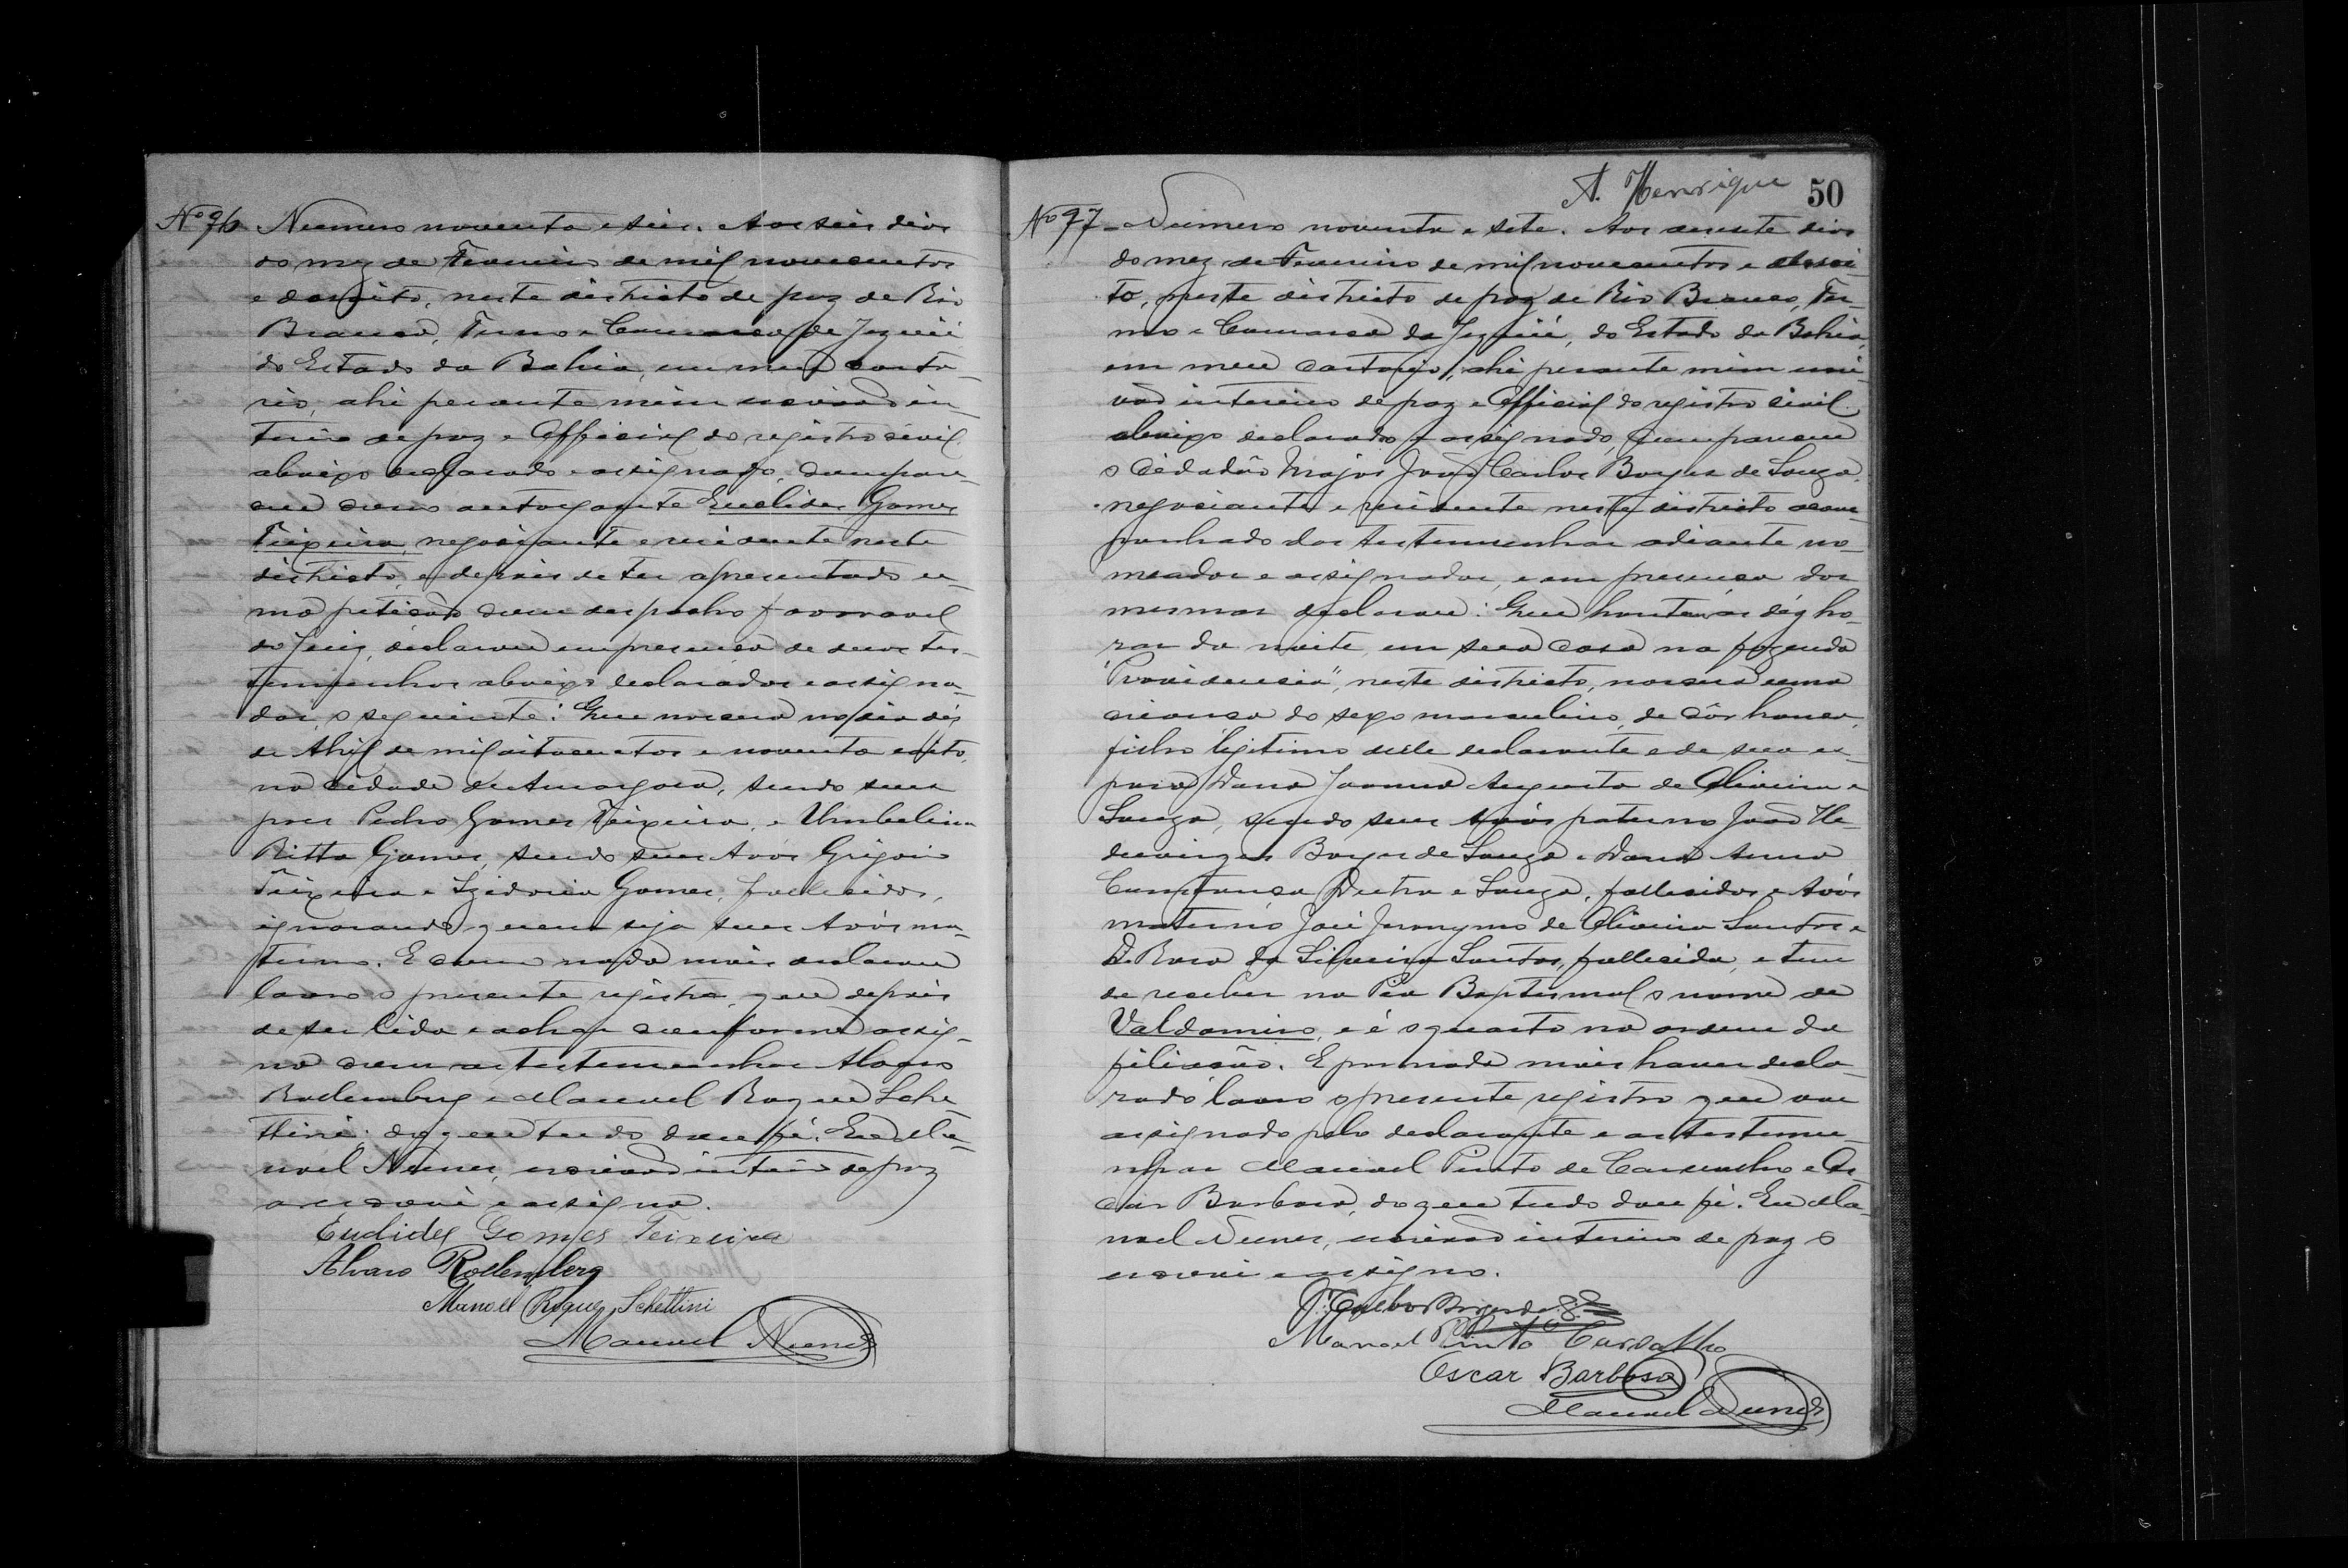 Nº 96 Numero noventa e seis. Aos seis dias
do mez de Fevereiro de mil novecentos
e desoito, neste districto de paz de Rio
Branco, Termo e Comarca de Jequié
do Estado da Bahia, em meu carto-
rio, ahi perante mim escrivão in-
terino de paz e Official do registro civil
abaixo declarado e assignado, compare-
ceu como outorgante Euclides Gomes
Teixeira, negociante e residente neste
districto, e depois de ter apresentado u-
ma petição com despacho favoravel
do Juiz, declarou em presença de duas tes-
temunhas abaixo declaradas e assigna-
das, o seguinte: Que nasceu no dia dés
de Abril de mil oitocentos e noventa e oito,
na cidade de Amargosa, sendo seus
paes Pedro Gomes Teixeira, e Umbelina
Ritta Gomes, sendo seus Avós Grigorio
Teixeira e Izidoria Gomes, fallecidos,
ignorando quem seja seus Avós ma-
terno. E como nada mais declarou
lavro o presente registro, que depois
de ser lido e achar conforme assig-
na com as testemunhas Alvaro
Rollemberg e Manoel Roque Sche-
ttini; do que tudo dou fé. Eu Ma-
noel Nunes, escrivão interino de paz
o escrevi e assigno.
Euclides Gomes Teixeira
Alvaro Rollemberg
Manoel Roque Schettini
Manoel Nunes
A. Henrique 50
Nº 97 - Numero noventa e sete. Aos desesete dias
do mez de Fevereiro de mil novecentos e desoi-
to, neste districto de paz de Rio Branco, Ter-
mo e Comarca de Jequié, do Estado da Bahia,
em meu cartorio, ahi perante mim escri-
vão interino de paz e Official do registro civil
abaixo declarado e assignado, compareceu
o Cidadão Major João Carlos Borges de Souza,
negociante e residente neste districto acom-
panhado das testemunhas adiante no-
meadas e assignadas, e em presença das
mesmas declarou: Que hontem as déz ho-
ras da noite, em sua casa na fazenda
"Providencia", neste districto, nasceu uma
creança do sexo masculino, de côr branca,
filho legitimo delle declarante e de sua es-
posa Dona Joanna Augusta de Oliveira e
Souza, sendo seus Avós paterno João He-
duvirges Borges de Souza e Dona Anna
Constança Dutra e Souza, fallecidos e Avós
materno José Jeronymo de Oliveira Santos e
D. Rosa da Silveira Santos, fallecida, e tem
de receber na Pia Baptismal o nome de
Valdomiro, e é o quarto na ordem da
filiação. E por nada mais haver decla-
rado lavro o presente registro que vae
assignado pelo declarante e as testemu-
nhas Manoel Pinto de Carvalho e Os-
car Barbosa, do que tudo dou fé. Eu Ma-
noel Nunes, escrivão interino de paz o
escrevi e assigno.
Manoel Pinto Carvalho
Oscar Barbosa
Manoel Nunes